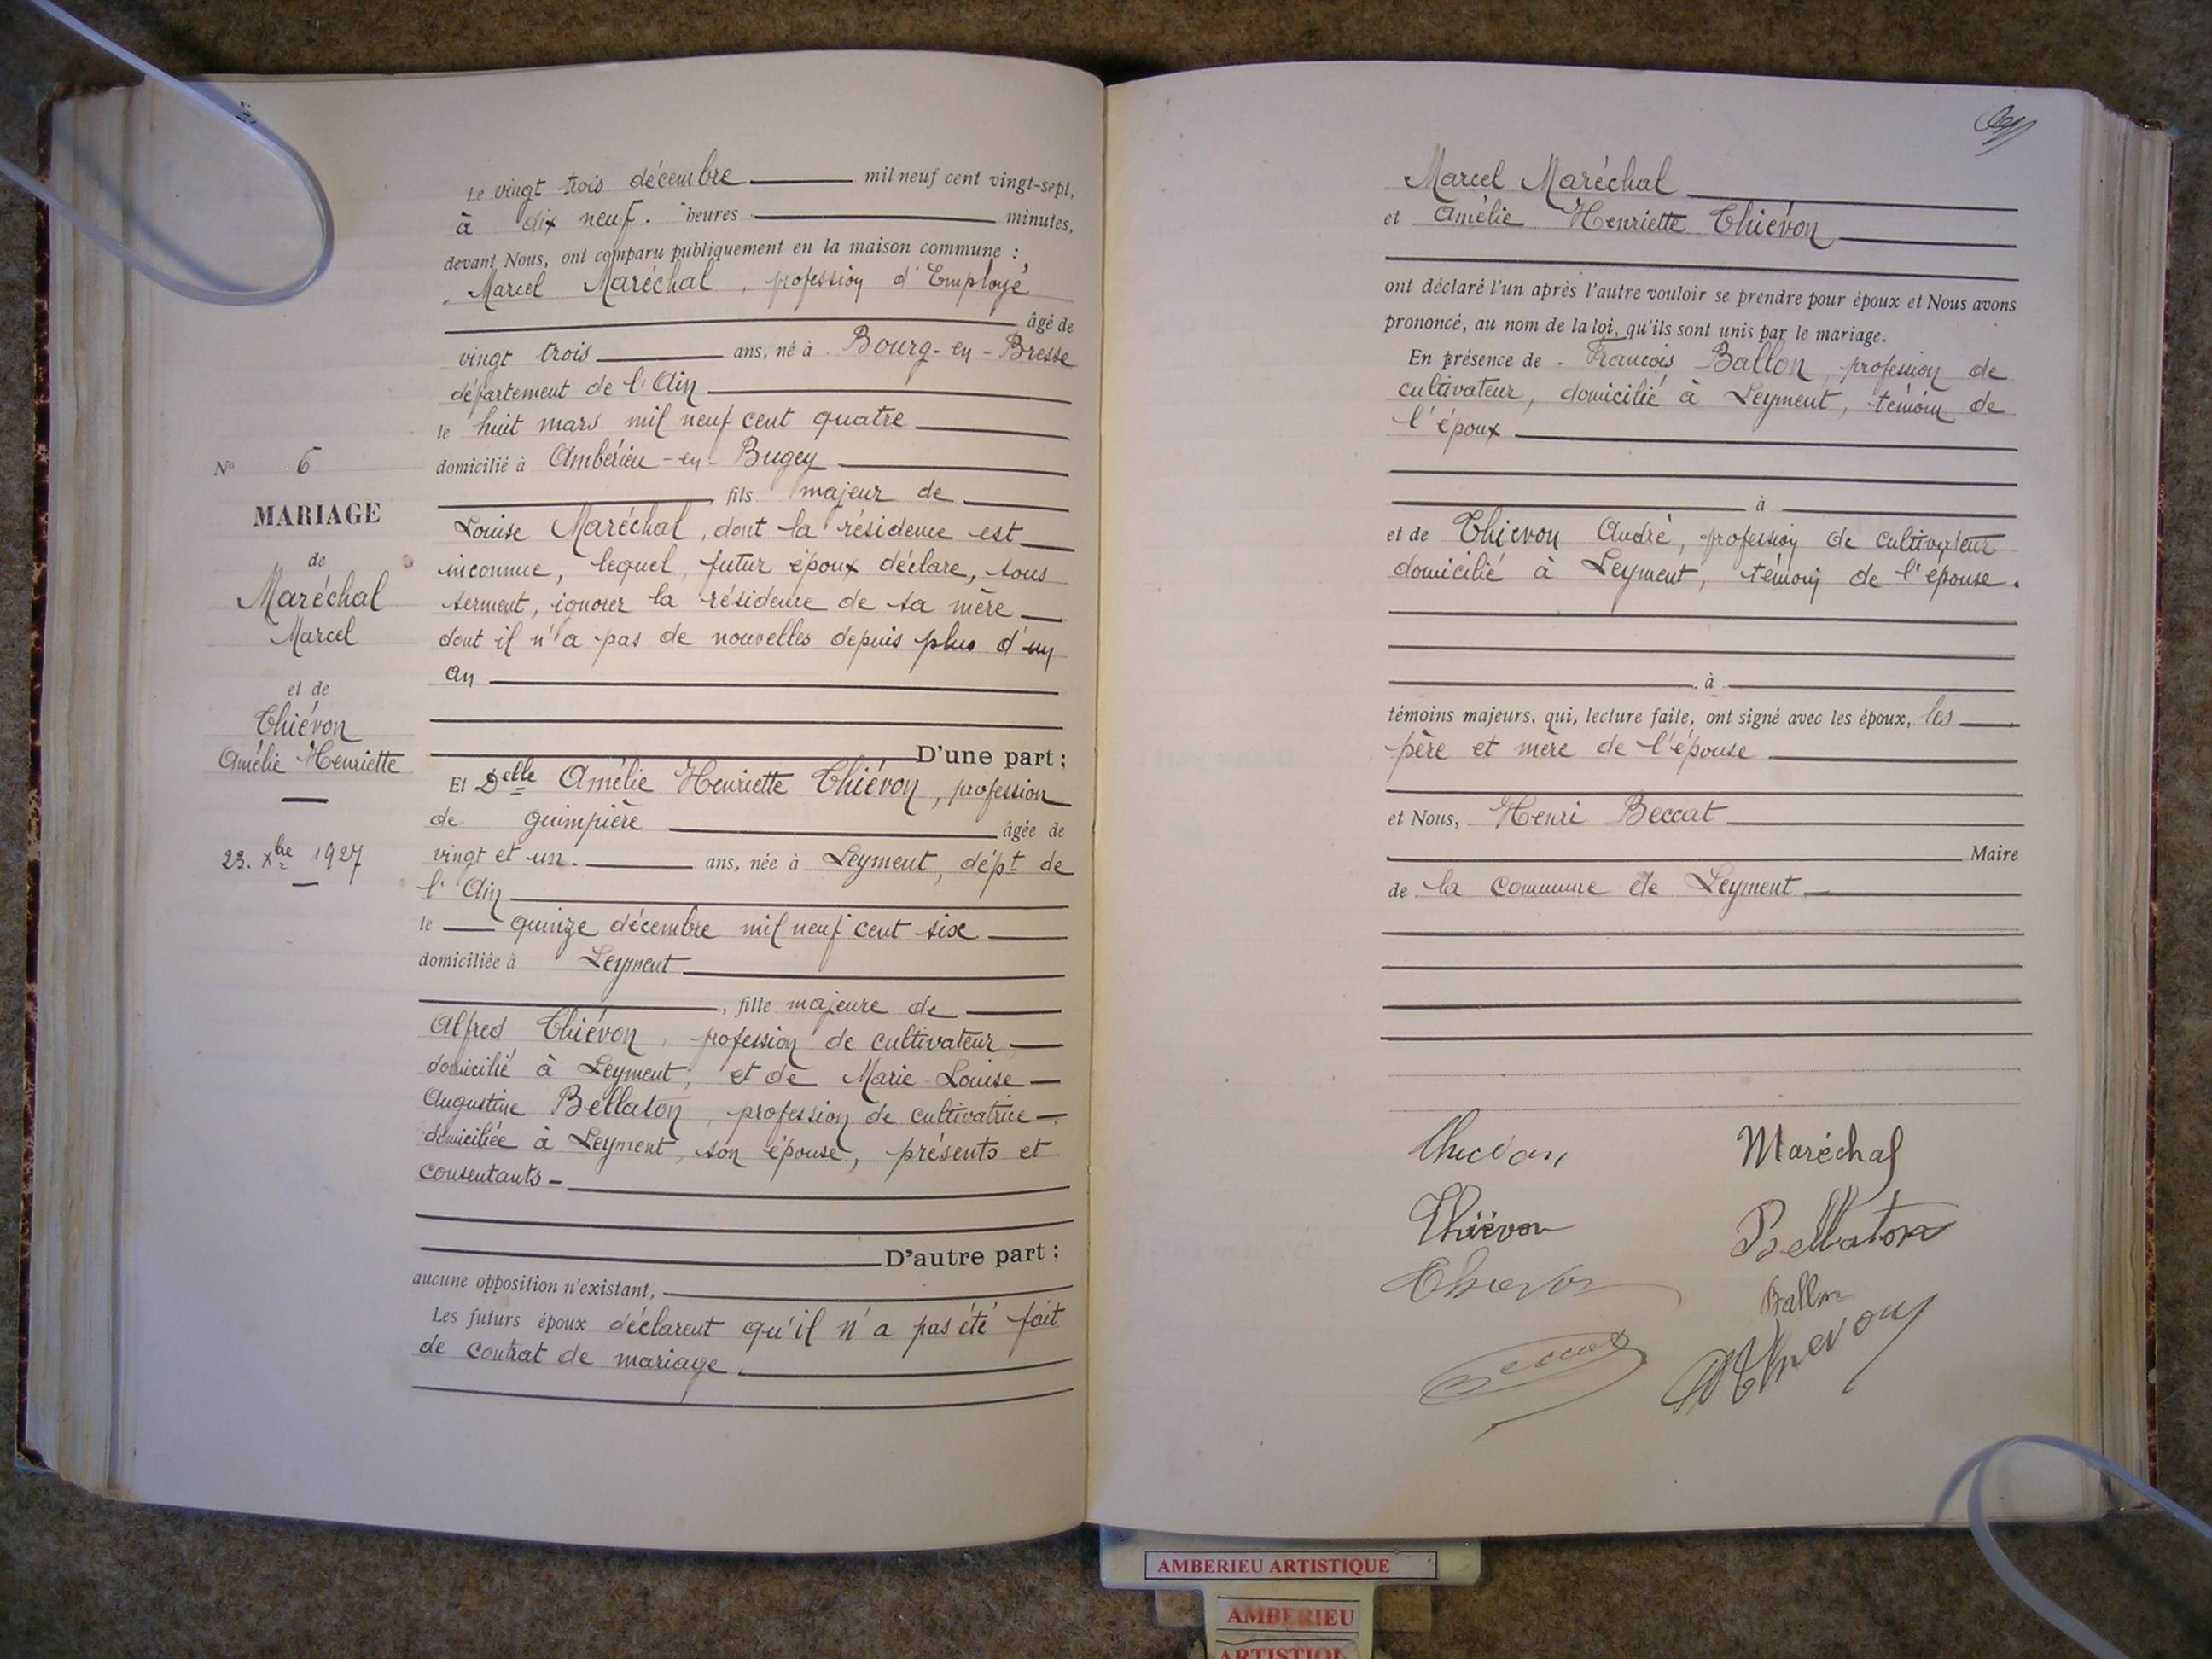 Nº 6
MARIAGE
de
Maréchal
Marcel
et de
Thiévon
Amélie Henriette
23. Xbre 1927
Le vingt trois décembre mil neuf cent vingt-sept,
à dix neuf. heures minutes,
devant Nous, ont comparu publiquement en la maison commune :
Marcel Maréchal, profession d'Employé
âgé de
vingt trois ans, né à Bourg-en-Bresse
département de l'Ain
le huit mars mil neuf cent quatre
domicilié à Ambérieu-en-Bugey
, fils majeur de
Louise Maréchal, dont la résidence est
inconnue, lequel, futur époux déclare, sous
serment, ignorer la résidence de sa mère
dont il n'a pas de nouvelles depuis plus d'un
an
D'une part ;
Et Delle Amélie Henriette Thiévon, profession
de guimpière âgée de
vingt et un. ans, née à Leyment, dépt de
l'Ain
le quinze décembre mil neuf cent six
domiciliée à Leyment
, fille majeure de
Alfred Thiévon, profession de cultivateur
domicilié à Leyment, et de Marie Louise
Augustine Bellaton, profession de cultivatrice
domiciliée à Leyment, son épouse, présents et
consentants
D'autre part ;
aucune opposition n'existant,
Les futurs époux déclarent qu'il n'a pas été fait
de contrat de mariage.
Marcel Maréchal
et Amélie Henriette Thiévon
ont déclaré l'un après l'autre vouloir se prendre pour époux et Nous avons
prononcé, au nom de la loi, qu'ils sont unis par le mariage.
En présence de François Ballon, profession de
cultivateur, domicilié à Leyment, témoin de
l'époux
à
et de Thievon André, profession de cultivateur
domicilié à Leyment, témoin de l'épouse.
à
témoins majeurs, qui, lecture faite, ont signé avec les époux, les
père et mère de l'épouse
et Nous, Henri Beccat
Maire
de la commune de Leyment
Thievon Maréchal
Thiévon Bellaton
Thievon Ballon
Beccat AThievon
AMBERIEU ARTISTIQUE
AMBERIEU
ARTISTIQ